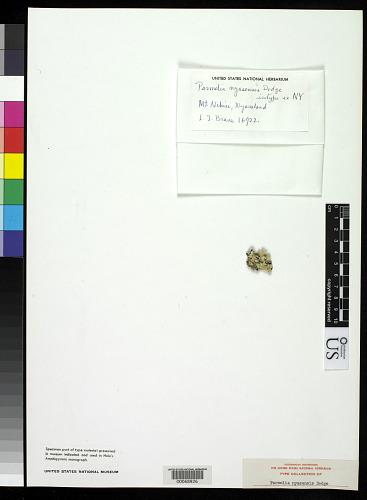 UNITED STATES NATIONAL HERBARIUM
Parmelia nyasensis Dodge
isotype ex NY
Mt. Nchisi, Nyasaland
L. J. Brass 16922.
cm
copyright reserved
US
Specimen part of type material preserved
in museum indicated and used in Hale's
Amphigymnia monograph.
UNITED STATES NATIONAL MUSEUM
TYPE COLLECTION OF
Parmelia nyasensis Dodge